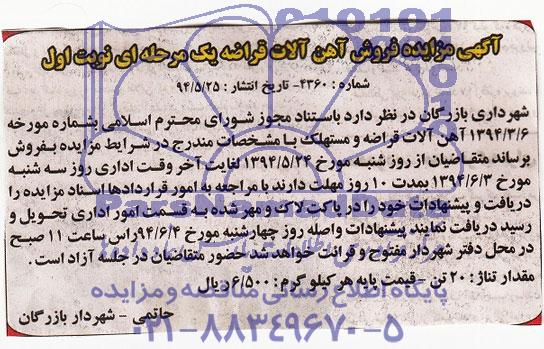 آگهی مزایده فروش آهن آلات قراضه یک مرحله ای نوبت اول
شماره : ۴۳۶۰- تاریخ انتشار : ۹۴/۵/۲۵
شهرداری بازرگان در نظر دارد باستناد مجوز شورای محترم اسلامی بشماره مورخه
۱۳۹۴/۳/۶ آهن آلات قراضه و مستهلک بـا مشخصات مندرج در شرایط مزایده بـفروش
برساند متقاضیان از روز شنبه مورخ ۱۳۹۴/۵/۲۴ لغایت آخر وقت اداری روز سه شنبه
مورخ ۱۳۹۴/۶/۳ بمدت ۱۰ روز مهلت دارند با مراجعه به امور قراردادها اسناد مزایده را
دریافت و پیشنهادات خود را در پاکت لاک و مهر شده به قسمت امور اداری تحویل و
رسید دریافت نمایند پیشنهادات واصله روز چهارشنبه مورخ ۹۴/۶/۴ راس ساعت ۱۱ صبح
در محل دفتر شهردار مفتوح و قرائت خواهد شد حضور متقاضیان در جلسه آزاد است .
مقدار تناژ : ۲۰ تن - قیمت پایه هر کیلو گرم : ۶/۵۰۰ ریال
حاتمی – شهردار بازرگان
ParsNamadData
پایگاه اطلاع رسانی مناقصه و مزایده
۰۲۱-۸۸۳۴۹۶۷۰-۵